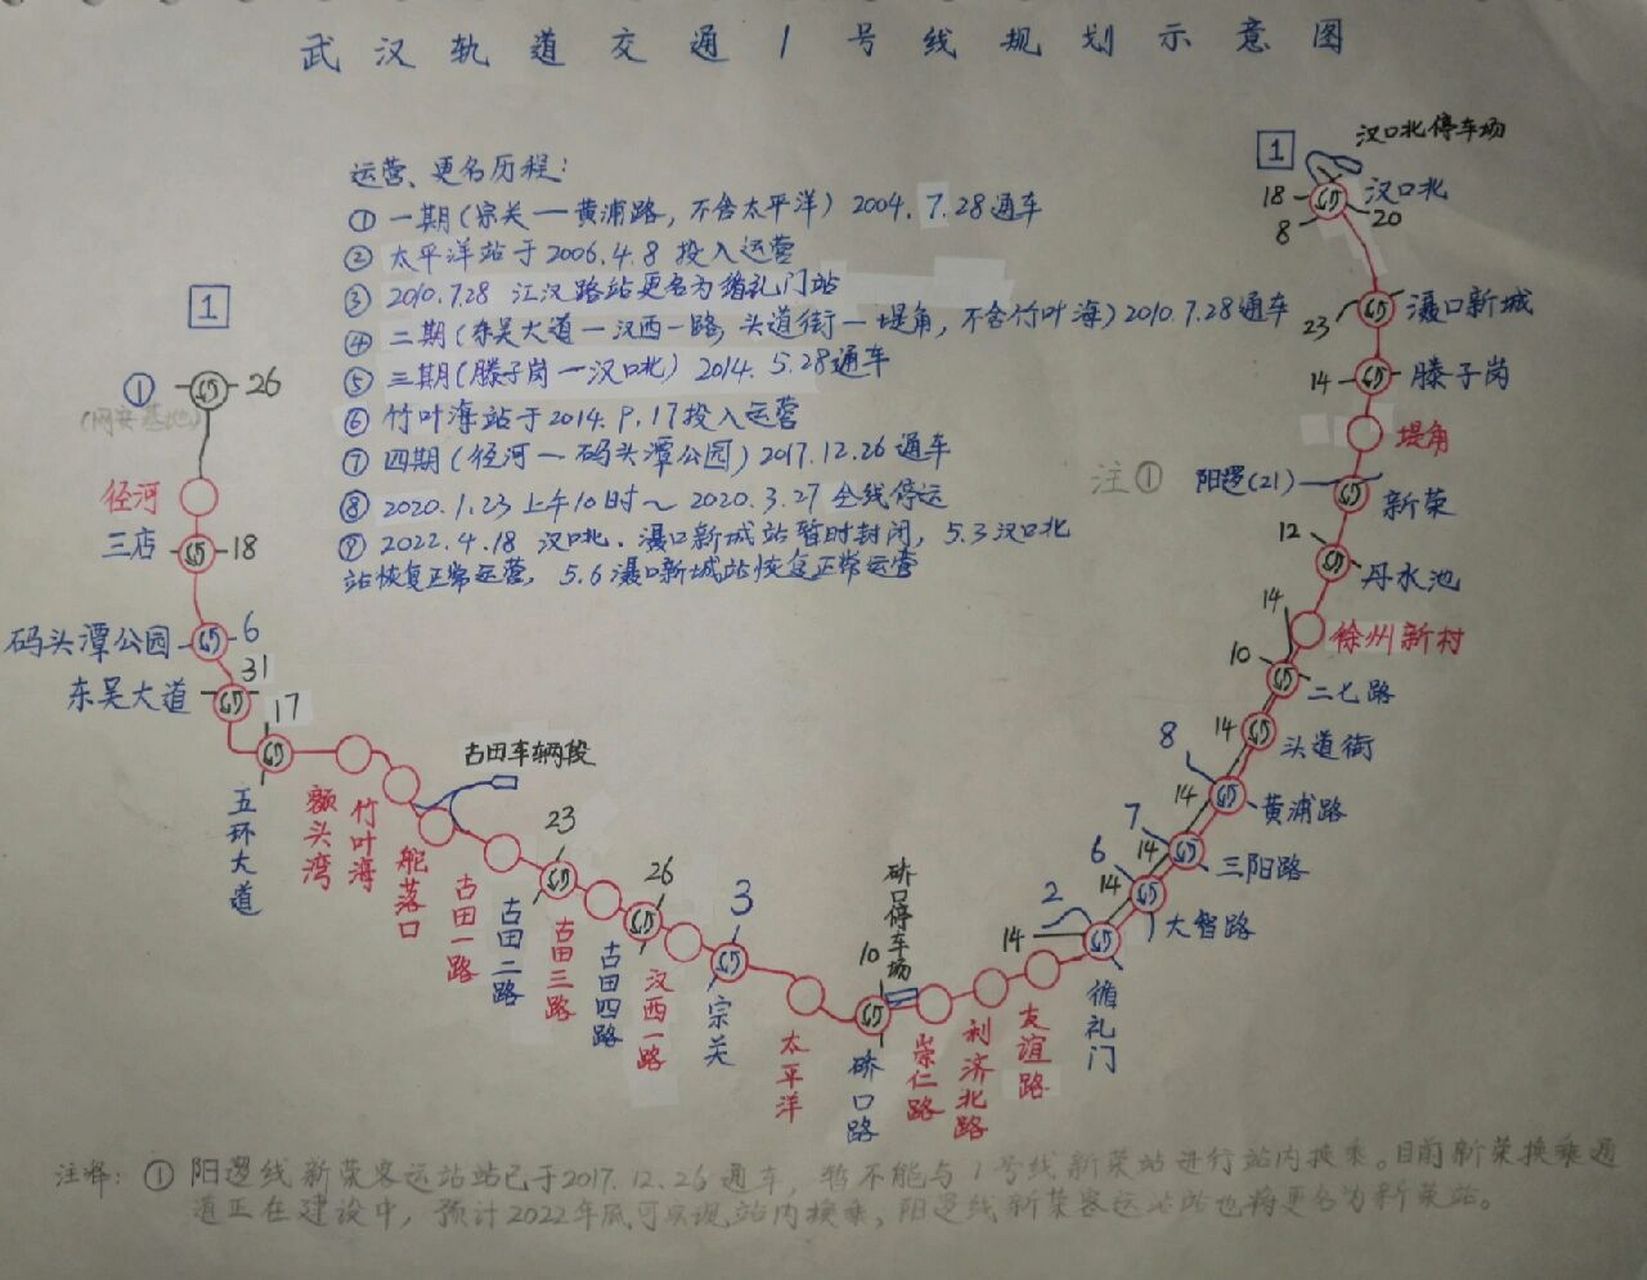 武汉轨道交通1号线规划示意图
运营、更名历程:
① 一期(宗关—黄浦路,不含太平洋) 2004.7.28通车
② 太平洋站于2006.4.8投入运营
③ 2010.7.28 江汉路站更名为循礼门站
④ 二期(东吴大道—汉西一路,头道街—堤角,不含竹叶海)2010.7.28通车
⑤ 三期(滕子岗—汉口北) 2014.5.28通车
⑥ 竹叶海站于2014.9.17投入运营
⑦ 四期(径河—码头潭公园)2017.12.26通车
⑧ 2020.1.23上午10时~2020.3.27全线停运
⑨ 2022.4.18 汉口北、滠口新城站暂时封闭,5.3汉口北
站恢复正常运营,5.6滠口新城站恢复正常运营
1
① 26
(网安基地)
径河
三店 18
码头潭公园 6
31
东吴大道
17
五环大道
额头湾
竹叶海
舵落口
古田车辆段
古田一路
古田二路
23
古田三路
古田四路
26
汉西一路
3
宗关
太平洋
10
硚口停车场
硚口路
崇仁路
利济北路
友谊路
2
14
循礼门
6
14
大智路
7
14
三阳路
8
14
黄浦路
14
头道街
10
二七路
14
徐州新村
12
丹水池
注①
阳逻(21)
新荣
堤角
14
滕子岗
23
滠口新城
1
汉口北停车场
18
汉口北
8
20
注释: ① 阳逻线新荣客运站站已于2017.12.26通车,暂不能与1号线新荣站进行站内换乘。目前新荣换乘通
道正在建设中,预计2022年底可实现站内换乘,阳逻线新荣客运站站也将更名为新荣站。